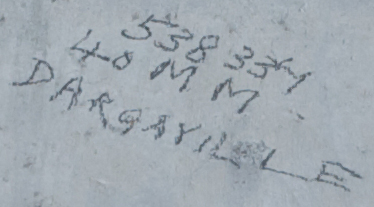 538 33M
40 MM
DARGAVILLE